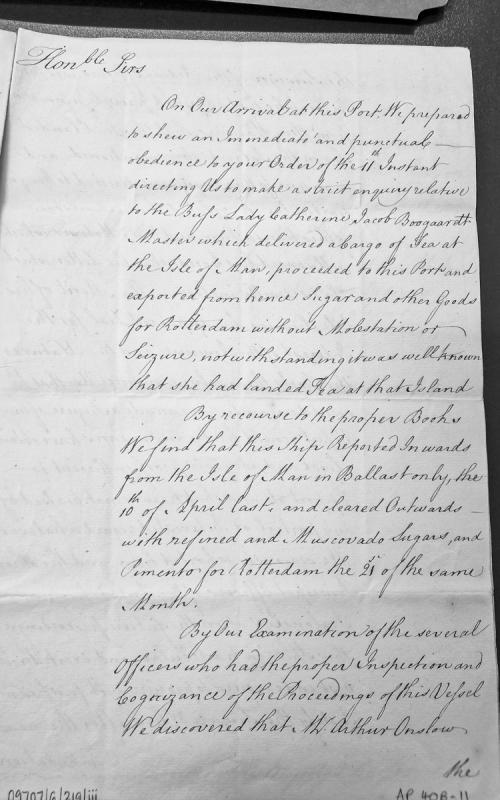 Hon.ble Sirs
On Our Arrival at this Port We prepared
to shew an Immediate and punctual
obedience to your Order of the 11th Instant
directing Us to make a strict enquiry relative
to the Buss Lady Catherine Jacob Boogaardt
Master which delivered a Cargo of Tea at
the Isle of Man, proceeded to this Port and
exported from hence Sugar and other Goods
for Rotterdam without Molestation or
Seizure, notwithstanding it was well known
that she had landed Tea at that Island
By recourse to the proper Books
We find that this Ship Reported Inwards
from the Isle of Man in Ballast only, the
10th of April last, and cleared Outwards
with refined and Muscovado Sugars, and
Pimento for Rotterdam the 21st of the same
Month.
By Our Examination of the several
Officers who had the proper Inspection and
Cognizance of the Proceedings of this Vessel
We discovered that Mr. Arthur Onslow
the
09707/6/219/iii
AP 40B-11